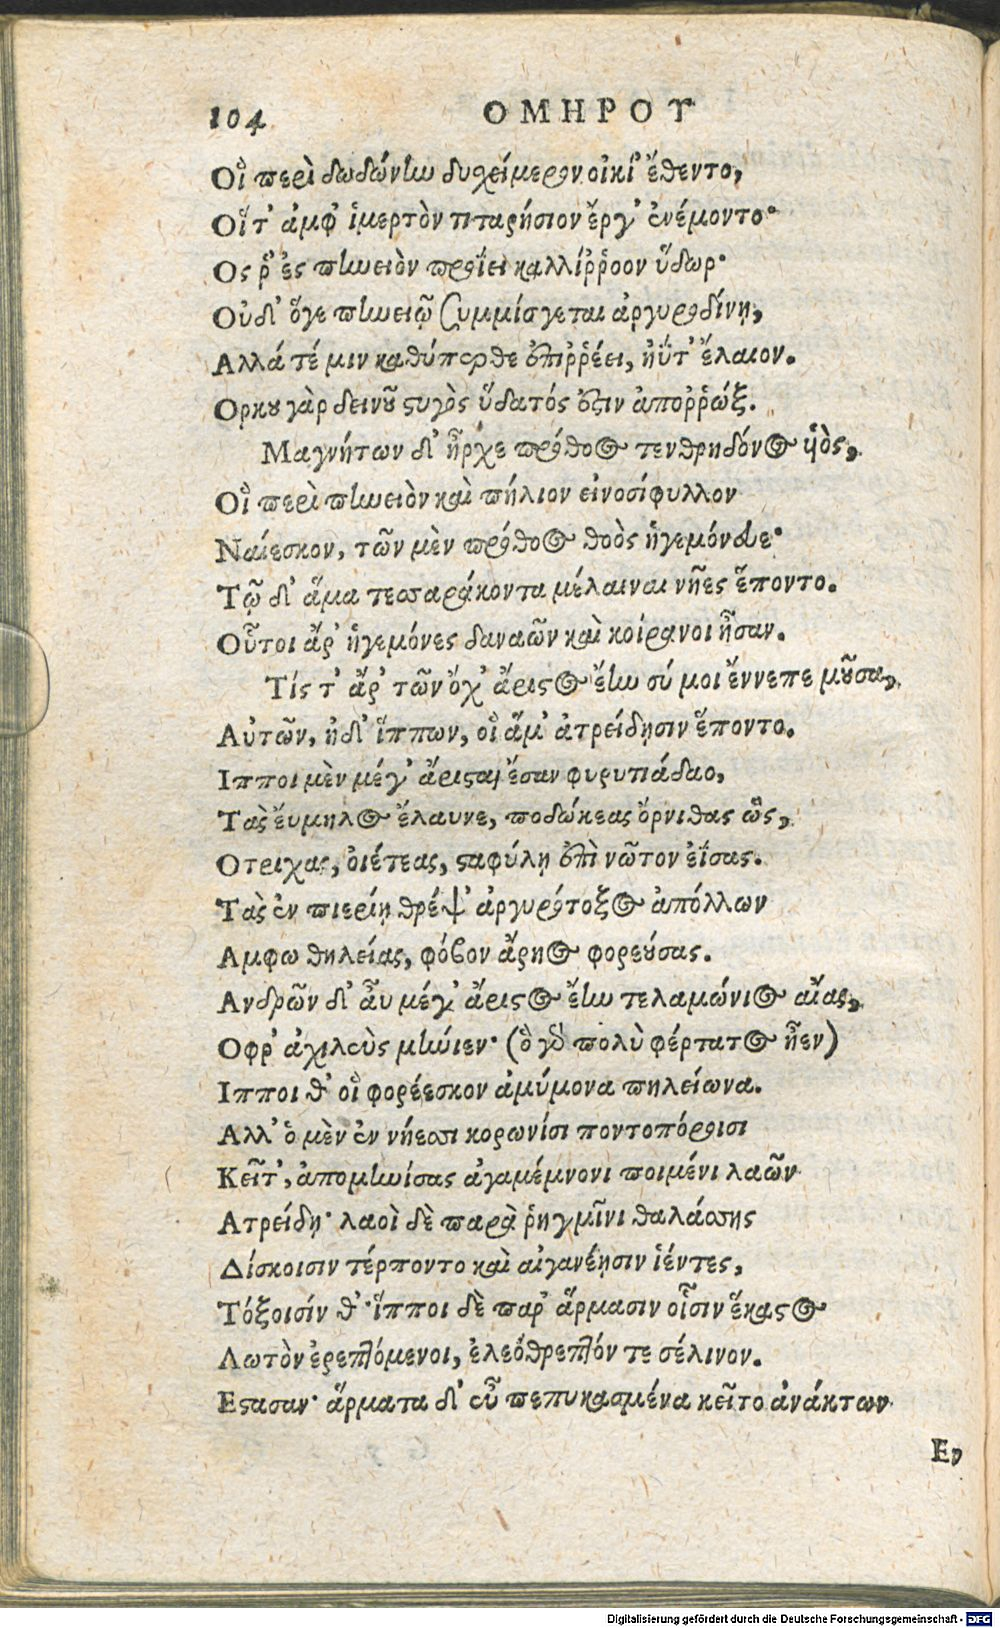 104 ΟΜΗΡΟΥ
Οἳ περὶ δωδώνην δυχείμερον οἰκί᾽ ἔθεντο,
Οἵτ᾽ ἀμφ᾽ ἱμερτὸν τιταρήσιον ἔργ᾽ ἐνέμοντο·
Ος ῥ᾽ ἐς πηνειὸν προΐει καλλίῤῥοον ὕδωρ·
Οὐδ᾽ ὅγε πηνειῷ συμμίσγεται ἀργυροδίνῃ,
Αλλά τέ μιν καθύπερθε ἐπιῤῥέει, ἠΰτ᾽ ἔλαιον.
Ορκου γὰρ δεινοῦ στυγὸς ὕδατός ἐστιν ἀποῤῥώξ.
Μαγνήτων δ᾽ ἦρχε πρόθοος τενθρηδόνος υἱὸς,
Οἳ περὶ πηνειὸν καὶ πήλιον εἰνοσίφυλλον
Ναίεσκον, τῶν μὲν πρόθοος θοὸς ἡγεμόνευε·
Τῷ δ᾽ ἅμα τεσσαράκοντα μέλαιναι νῆες ἕποντο.
Οὗτοι ἄρ᾽ ἡγεμόνες δαναῶν καὶ κοίρανοι ἦσαν.
Τίς τ᾽ ἄρ᾽ τῶν ὄχ᾽ ἄριστος ἔην σύ μοι ἔννεπε μοῦσα,
Αὐτῶν, ἠδ᾽ ἵππων, οἳ ἅμ᾽ ἀτρείδῃσιν ἕποντο.
Ιπποι μὲν μέγ᾽ ἄρισται ἔσαν φυρυτιάδαο,
Τὰς ἔυμηλος ἔλαυνε, ποδώκεας ὄρνιθας ὣς,
Οτριχας, ὀιέτεας, σταφύλῃ ἐπὶ νῶτον ἐΐσας.
Τὰς ἐν πιερίῃ θρέψ᾽ ἀργυρότοξος ἀπόλλων
Αμφω θηλείας, φόβον ἄρηος φορεούσας.
Ανδρῶν δ᾽ αὖ μέγ᾽ ἄριστος ἔην τελαμώνιος αἴας,
Οφρ᾽ ἀχιλεὺς μήνιεν· (ὃ γὰρ πολὺ φέρτατος ἦεν)
Ιπποι θ᾽ οἳ φορέεσκον ἀμύμονα πηλείωνα.
Αλλ᾽ ὁ μὲν ἐν νήεσσι κορωνίσι ποντοπόροισι
Κεῖτ᾽, ἀπομηνίσας ἀγαμέμνονι ποιμένι λαῶν
Ατρείδῃ· λαοὶ δὲ παρὰ ῥηγμῖνι θαλάσσης
Δίσκοισιν τέρποντο καὶ αἰγανέῃσιν ἱέντες,
Τόξοισίν θ᾽· ἵπποι δὲ παρ᾽ ἅρμασιν οἷσιν ἕκαστος
Λωτὸν ἐρεπτόμενοι, ἐλεόθρεπτόν τε σέλινον.
Εστασαν· ἅρματα δ᾽ εὖ πεπυκασμένα κεῖτο ἀνάκτων
Εν
Digitalisierung gefördert durch die Deutsche Forschungsgemeinschaft - DFG